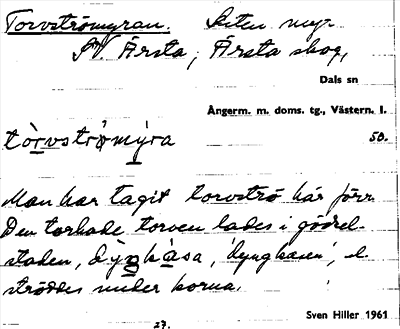 Torvströmyran. Liten myr
SV Ärsta, Ärsta skog,
Dals sn
Ångerm. m. doms. tg., Västern. l.
tòrvströ̀mýra 50.
Man har tagit torvströ här förr.
Den torkade torven lades i gödsel-
staden, dỳngkàsa, 'dyngkasen', el.
ströddes under korna.
Sven Hiller 1961
27.